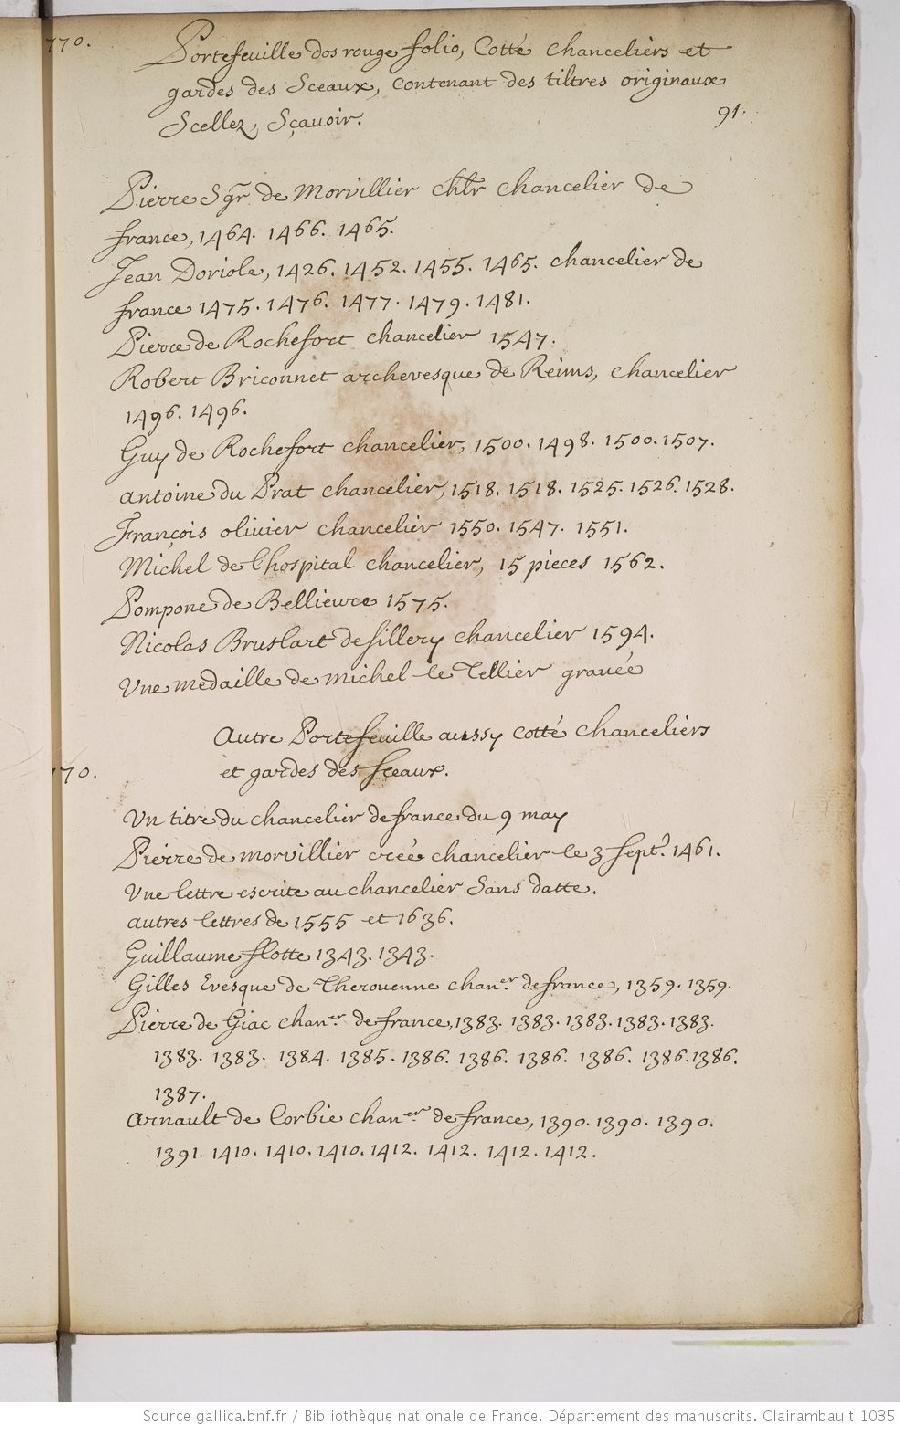 770.
Portefeuille dos rouge folio, Cotté Chanceliers et
gardes des Sceaux, contenant des tiltres originaux
Scellez, Sçavoir.
91.
Pierre Sgr de Morvillier chlr chancelier de
france, 1464. 1466. 1465.
Jean Doriole, 1426. 1452. 1455. 1465. chancelier de
france 1475. 1476. 1477. 1479. 1481.
Pierre de Rochefort chancelier 1547.
Robert Briconnet archevesque de Reims, chancelier
1496. 1496.
Guy de Rochefort chancelier, 1500. 1498. 1500. 1507.
antoine du Prat chancelier, 1518. 1518. 1525. 1526. 1528.
François olivier chancelier 1550. 1547. 1551.
Michel de lhospital chancelier, 15 pieces 1562.
Pompone de Bellieure 1575.
Nicolas Bruslart de sillery chancelier 1594.
Une medaille de michel le Tellier gravée
Autre Portefeuille aussy cotté chanceliers
et gardes des sceaux.
770.
Un titre du chancelier de france du 9 may
Pierre de morvillier créé chancelier le 3 Sept. 1461.
Une lettre escrite au chancelier Sans datte.
autres lettres de 1555 et 1636.
Guillaume flotte 1343. 1343.
Gilles Evesque de Therouenne chan.er de france, 1359. 1359.
Pierre de Giac chan.er de france, 1383. 1383. 1383. 1383. 1383.
1383. 1383. 1384. 1385. 1386. 1386. 1386. 1386. 1386. 1386.
1387.
Arnault de Corbie chan.er de france, 1390. 1390. 1390.
1391. 1410. 1410. 1410. 1412. 1412. 1412. 1412.
Source gallica.bnf.fr / Bibliothèque nationale de France. Département des manuscrits. Clairambault 1035